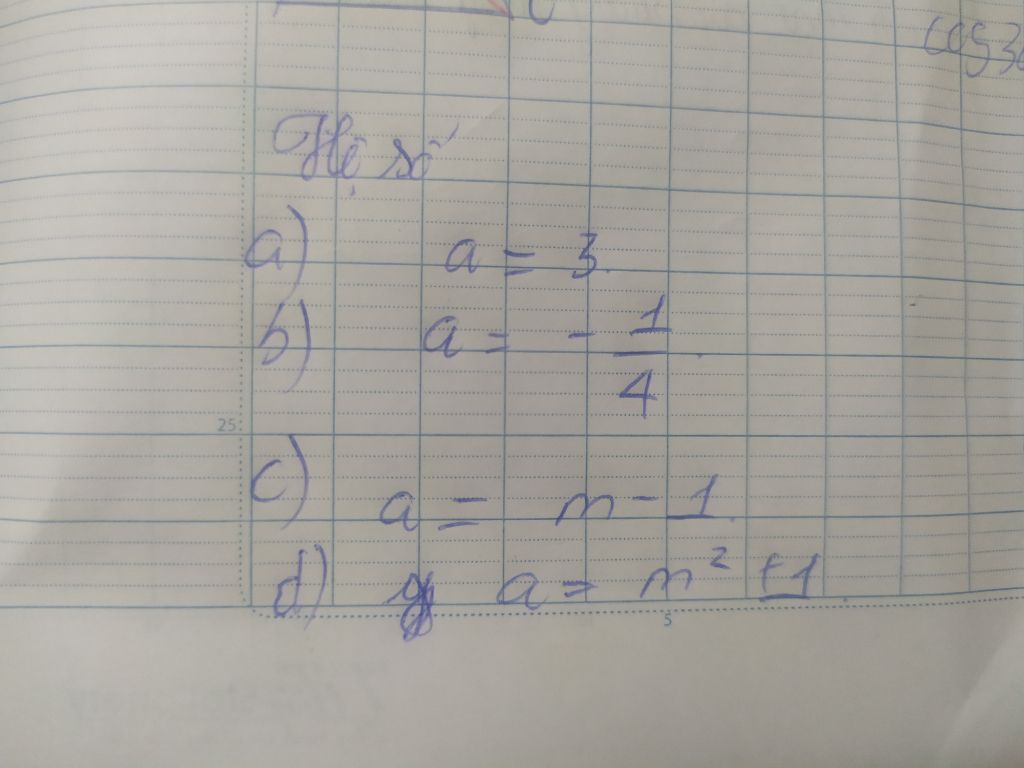 cos 3
Hệ số
a) a = 3.
b) a = - 1/4.
25
c) a = m - 1.
d) a = m² + 1.
5